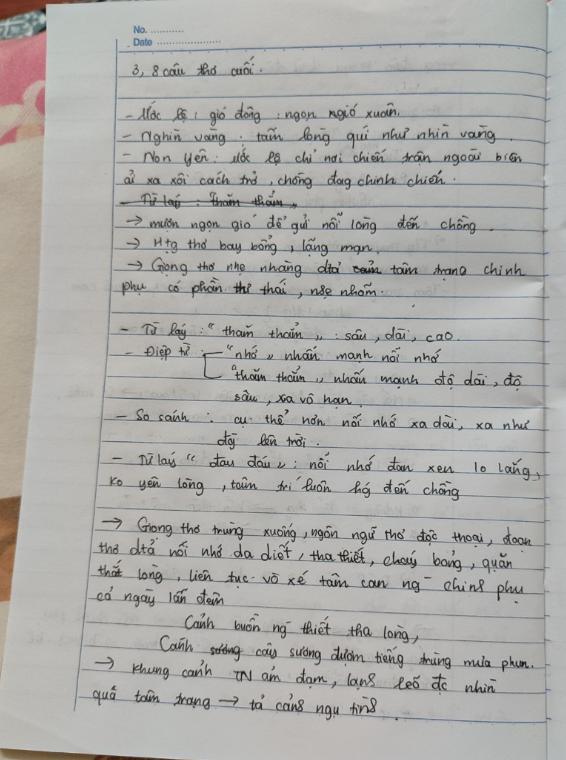 No. ............
Date .....................
3, 8 câu thơ cuối.
- Ước lệ: gió đông: ngọn gió xuân.
- Nghìn vàng: tấm lòng quí như nhìn vàng.
- Non Yên: ước lệ chỉ nơi chiến trận ngoài biên
ải xa xôi cách trở, chồng đag chinh chiến.
- Từ láy: thăm thẳm„
→ mượn ngọn gió để gửi nỗi lòng đến chồng.
→ Htg thơ bay bổng, lãng mạn.
→ Giọng thơ nhẹ nhàng dtả tâm trạng chinh
phụ có phần thư thái, nhẹ nhõm.
- Từ láy: "thăm thẳm„: sâu, dài, cao.
- Điệp từ: "nhớ„ nhấn mạnh nỗi nhớ
"thăm thẳm„ nhấn mạnh độ dài, độ
sâu, xa vô hạn
- So sánh: cụ thể hơn nỗi nhớ xa dài, xa như
đg lên trời.
- Từ láy "đau đáu„: nỗi nhớ đan xen lo lắng,
ko yên lòng, tâm trí luôn hg đến chồng
→ Giọng thơ trùng xuống, ngôn ngữ thơ độc thoại, đoạn
thơ dtả nỗi nhớ da diết, tha thiết, cháy bỏng, quặn
thắt lòng, liên tục vò xé tâm can ng chinh phụ
cả ngày lẫn đêm
Cảnh buồn ng thiết tha lòng,
Cành sương cây sương đượm tiếng trùng mưa phun.
→ Khung cảnh TN ảm đạm, lạnh lẽo đc nhìn
quá tâm trạng → tả cảnh ngụ tình.